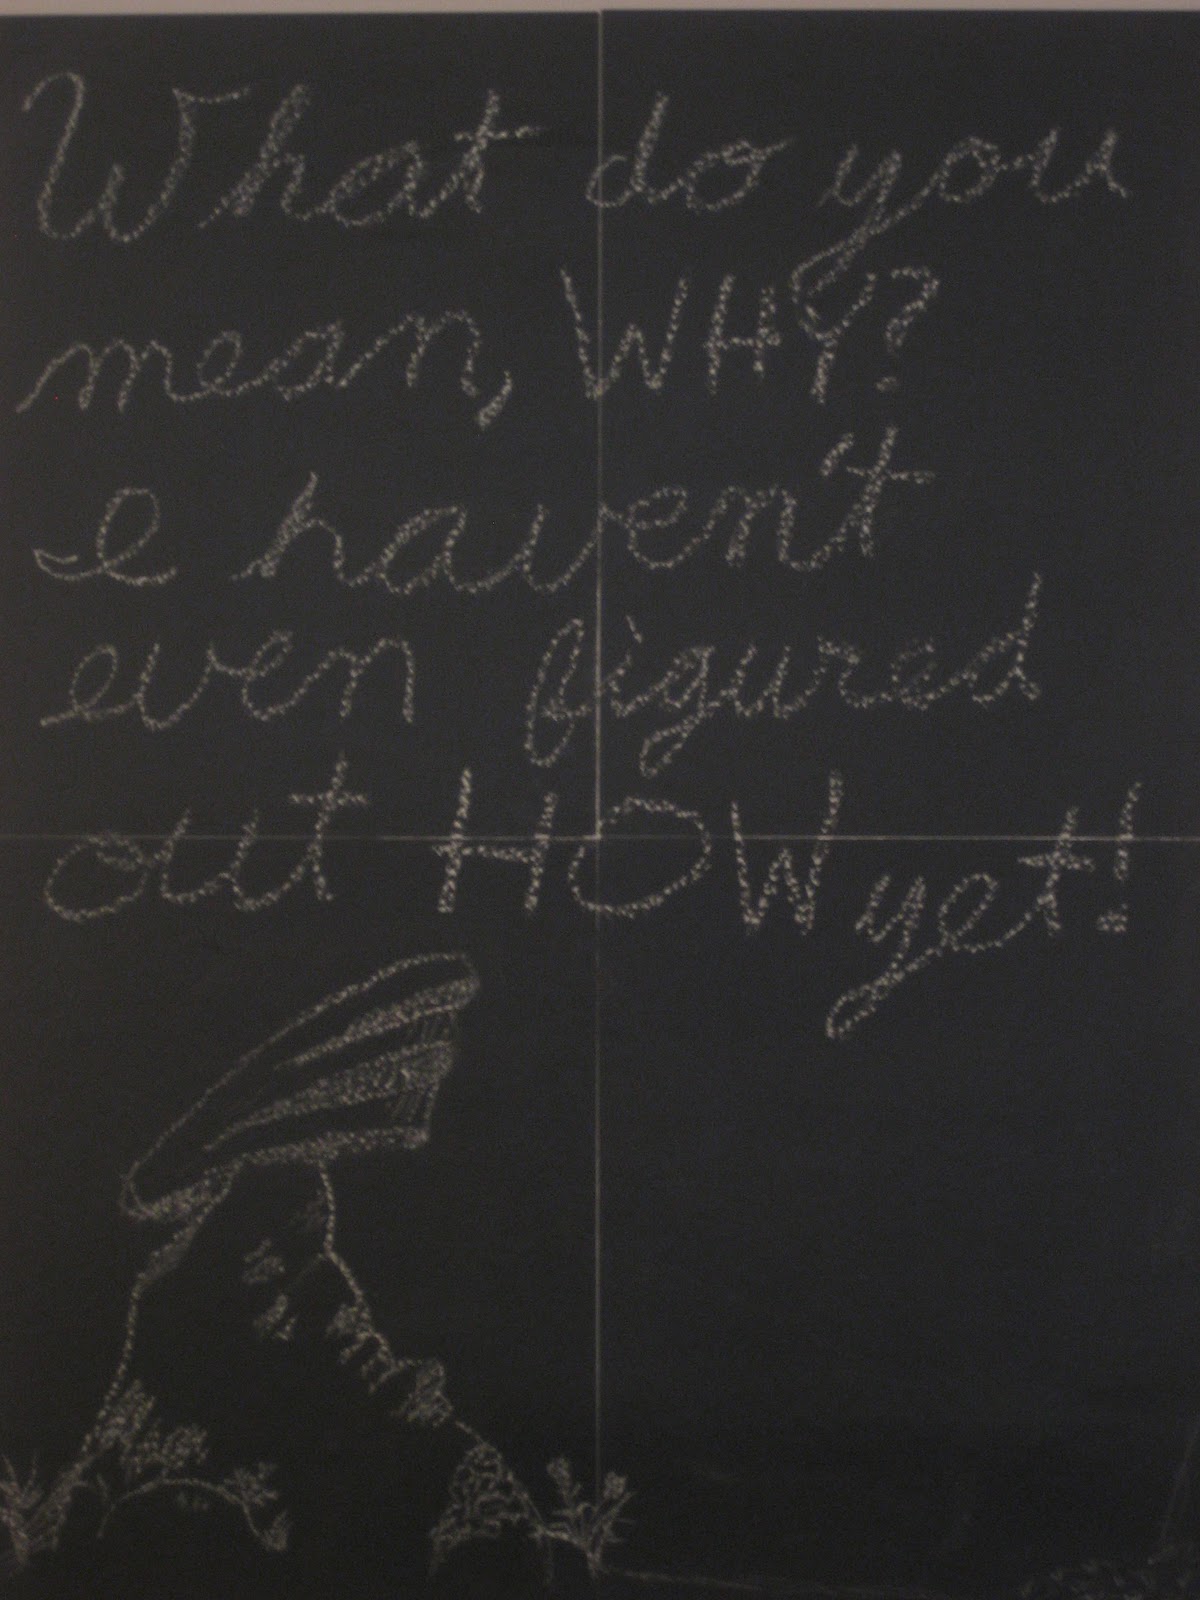 What do you
mean, WHY?
I haven't
even figured
out HOW yet!